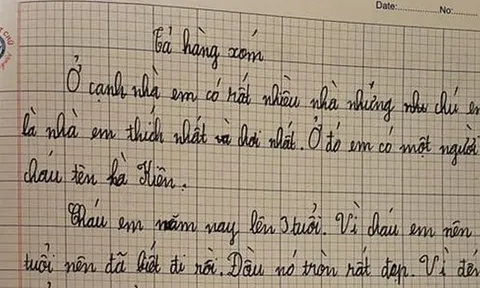 Date: No:
Tả hàng xóm
Ở cạnh nhà em có rất nhiều nhà nhưng như chú e
là nhà em thích nhất và chơi nhất. Ở đó em có một người
cháu tên là Hiên.
Cháu em năm nay lên 3 tuổi. Vì cháu em nên
tuổi nên đã biết đi rồi. Đầu nó tròn rất đẹp. Vì đế